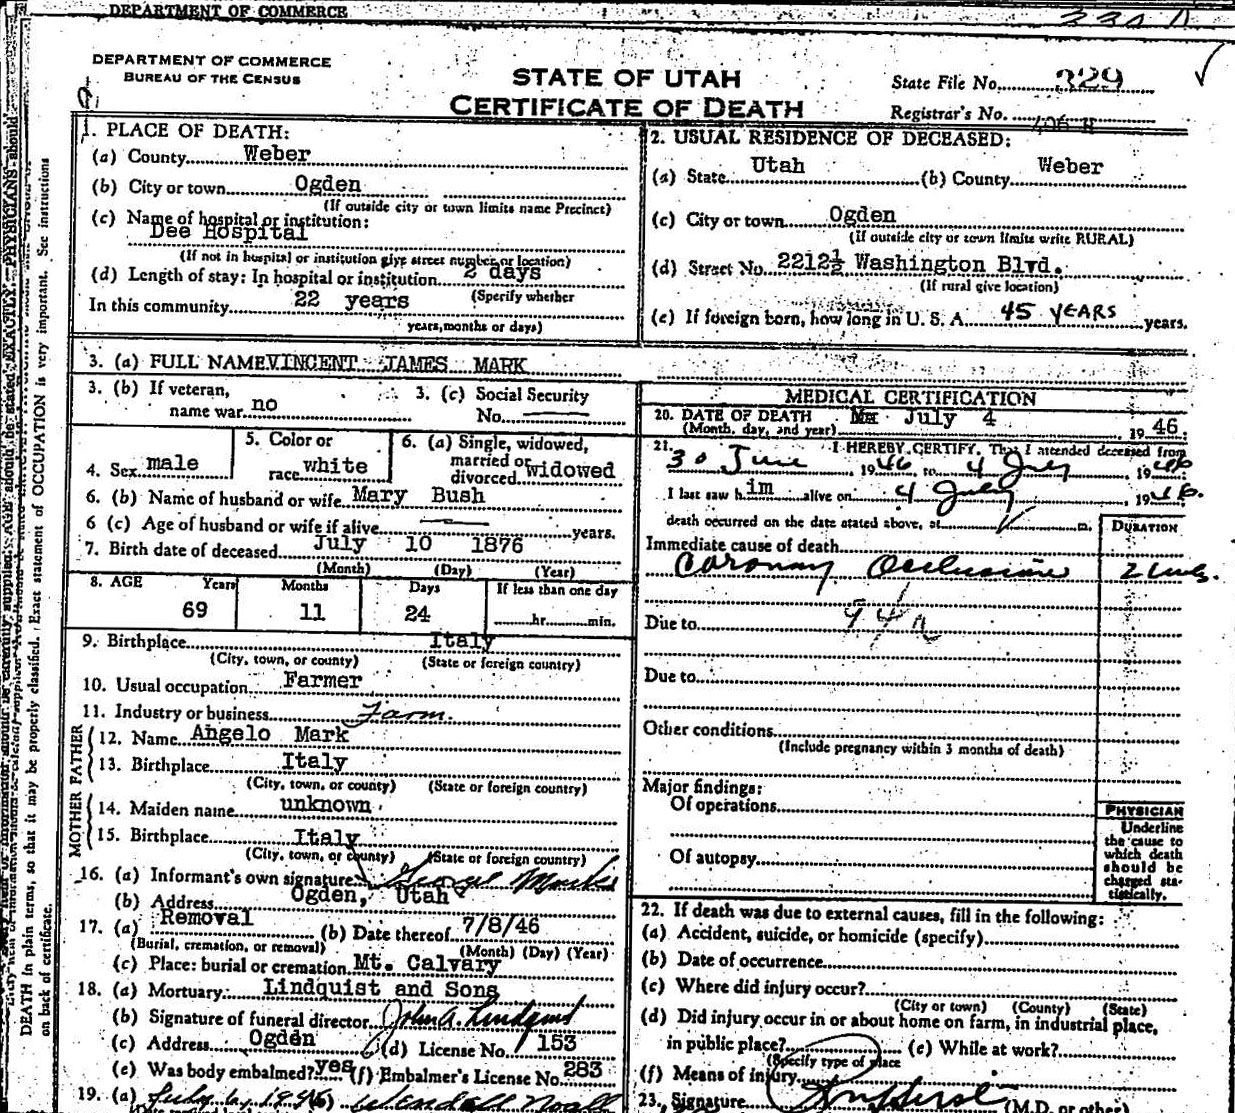 DEPARTMENT OF COMMERCE
DEPARTMENT OF COMMERCE
BUREAU OF THE CENSUS
STATE OF UTAH
CERTIFICATE OF DEATH
State File No. 329
Registrar's No.
1. PLACE OF DEATH:
(a) County Weber
(b) City or town Ogden
(If outside city or town limits name Precinct)
(c) Name of hospital or institution:
Dee Hospital
(If not in hospital or institution give street number or location)
(d) Length of stay: In hospital or institution 2 days
(Specify whether
In this community 22 years
years, months or days)
2. USUAL RESIDENCE OF DECEASED:
(a) State Utah (b) County Weber
(c) City or town Ogden
(If outside city or town limits write RURAL)
(d) Street No. 2212½ Washington Blvd.
(If rural give location)
(e) If foreign born, how long in U. S. A. 45 YEARS years.
3. (a) FULL NAME VINCENT JAMES MARK
3. (b) If veteran,
name war no
3. (c) Social Security
No.
4. Sex male
5. Color or
race white
6. (a) Single, widowed,
married or
divorced widowed
6. (b) Name of husband or wife Mary Bush
6 (c) Age of husband or wife if alive years.
7. Birth date of deceased July 10 1876
(Month) (Day) (Year)
8. AGE Years Months Days If less than one day
69 11 24 hr. min.
9. Birthplace Italy
(City, town, or county) (State or foreign country)
10. Usual occupation Farmer
11. Industry or business Farm.
MOTHER FATHER
12. Name Angelo Mark
13. Birthplace Italy
(City, town, or county) (State or foreign country)
14. Maiden name unknown
15. Birthplace Italy
(City, town, or county) (State or foreign country)
16. (a) Informant's own signature George Marks
(b) Address Ogden, Utah
17. (a) Removal (b) Date thereof 7/8/46
(Burial, cremation, or removal) (Month) (Day) (Year)
(c) Place: burial or cremation Mt. Calvary
18. (a) Mortuary: Lindquist and Sons
(b) Signature of funeral director John A. Lindquist
(c) Address Ogden (d) License No. 153
(e) Was body embalmed? yes (f) Embalmer's License No. 283
19. (a) July 6, 1946 (b) Wendell Noall
MEDICAL CERTIFICATION
20. DATE OF DEATH July 4
(Month, day, and year) 1946
21. I HEREBY CERTIFY, That I attended deceased from
30 June 1946 to 4 July 1946
I last saw him alive on 4 July 1946.
death occurred on the date stated above, at m.
DURATION
Immediate cause of death
Coronary Occlusion 2 wks.
Due to 94a
Due to
Other conditions
(Include pregnancy within 3 months of death)
Major findings:
Of operations
Of autopsy
PHYSICIAN
Underline
the cause to
which death
should be
charged sta-
tistically.
22. If death was due to external causes, fill in the following:
(a) Accident, suicide, or homicide (specify)
(b) Date of occurrence
(c) Where did injury occur?
(City or town) (County) (State)
(d) Did injury occur in or about home on farm, in industrial place,
in public place? (e) While at work?
(Specify type of place
(f) Means of injury
23. Signature (M.D. or other)
DEATH in plain terms, so that it may be properly classified. Exact statement of OCCUPATION is very important. See instructions
on back of certificate.